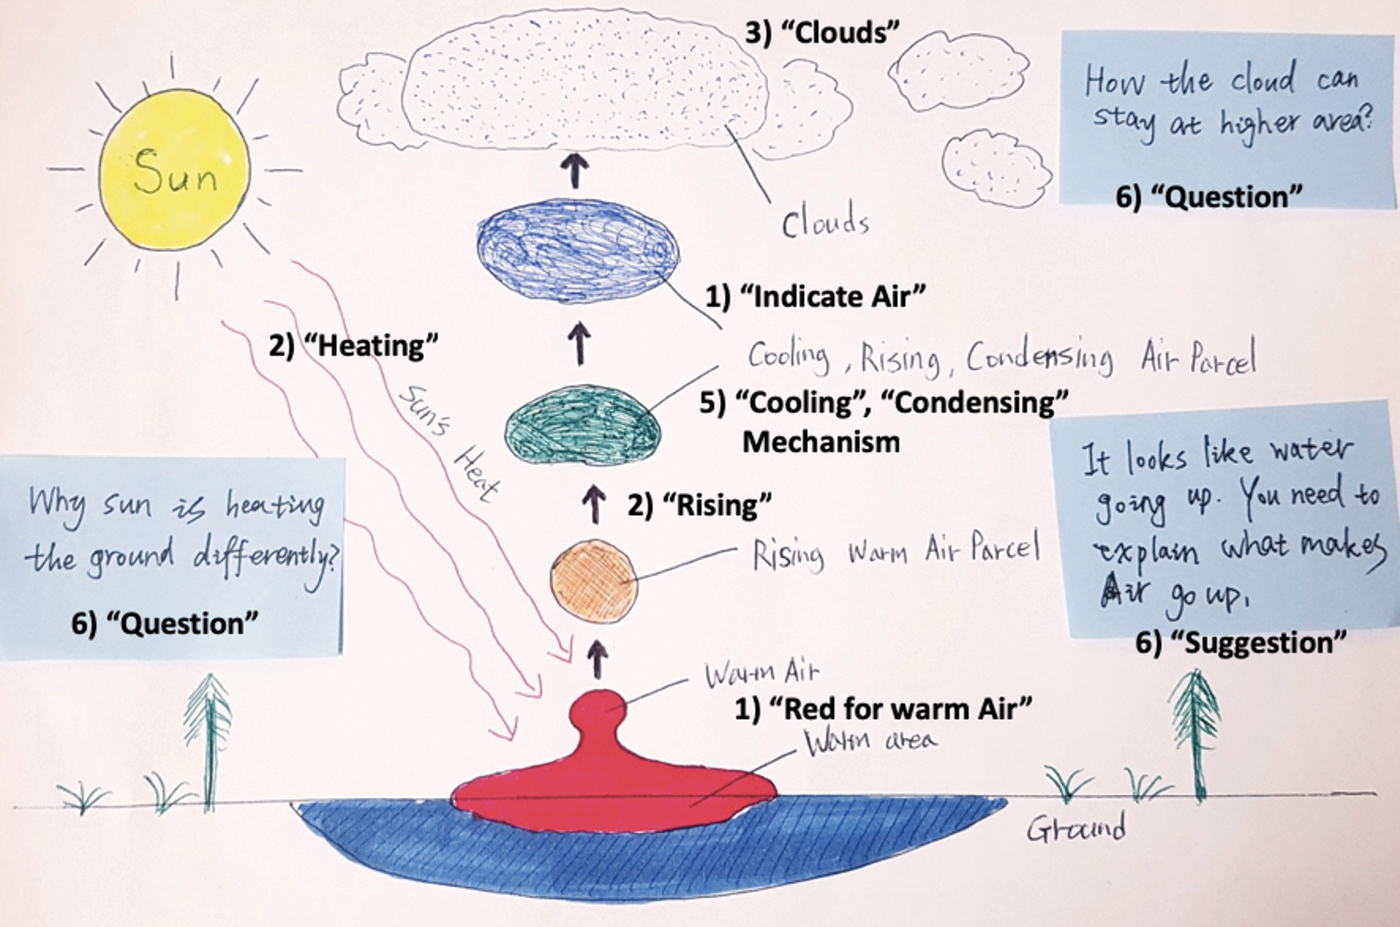 3) “Clouds”
How the cloud can
stay at higher area?
6) “Question”
Sun
Clouds
1) “Indicate Air”
2) “Heating”
Cooling, Rising, Condensing Air Parcel
Sun's Heat
5) “Cooling”, “Condensing”
Mechanism
It looks like water
going up. You need to
explain what makes
Air go up.
6) “Suggestion”
Why sun is heating
the ground differently?
6) “Question”
2) “Rising”
Rising Warm Air Parcel
Warm Air
1) “Red for warm Air”
Warm area
Ground